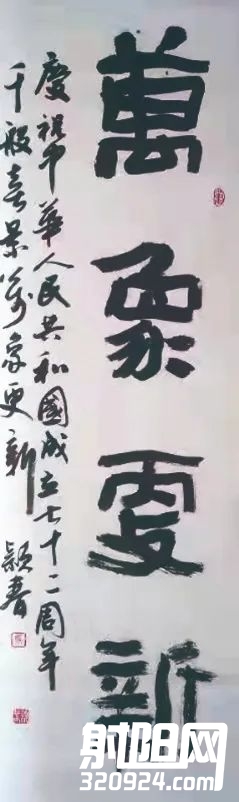 萬象更新
慶祝中華人民共和國成立七十二周年
千般喜景萬象更新 穎春
射阳网
320924.com